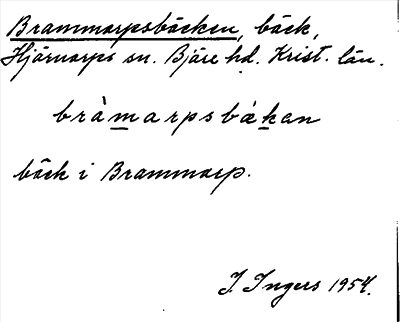 Brammarpsbäcken, bäck,
Hjärnarps sn. Bjäre hd. Krist. län.
bràmarpsbækan
bäck i Brammarp.
I. Ingers 1954.